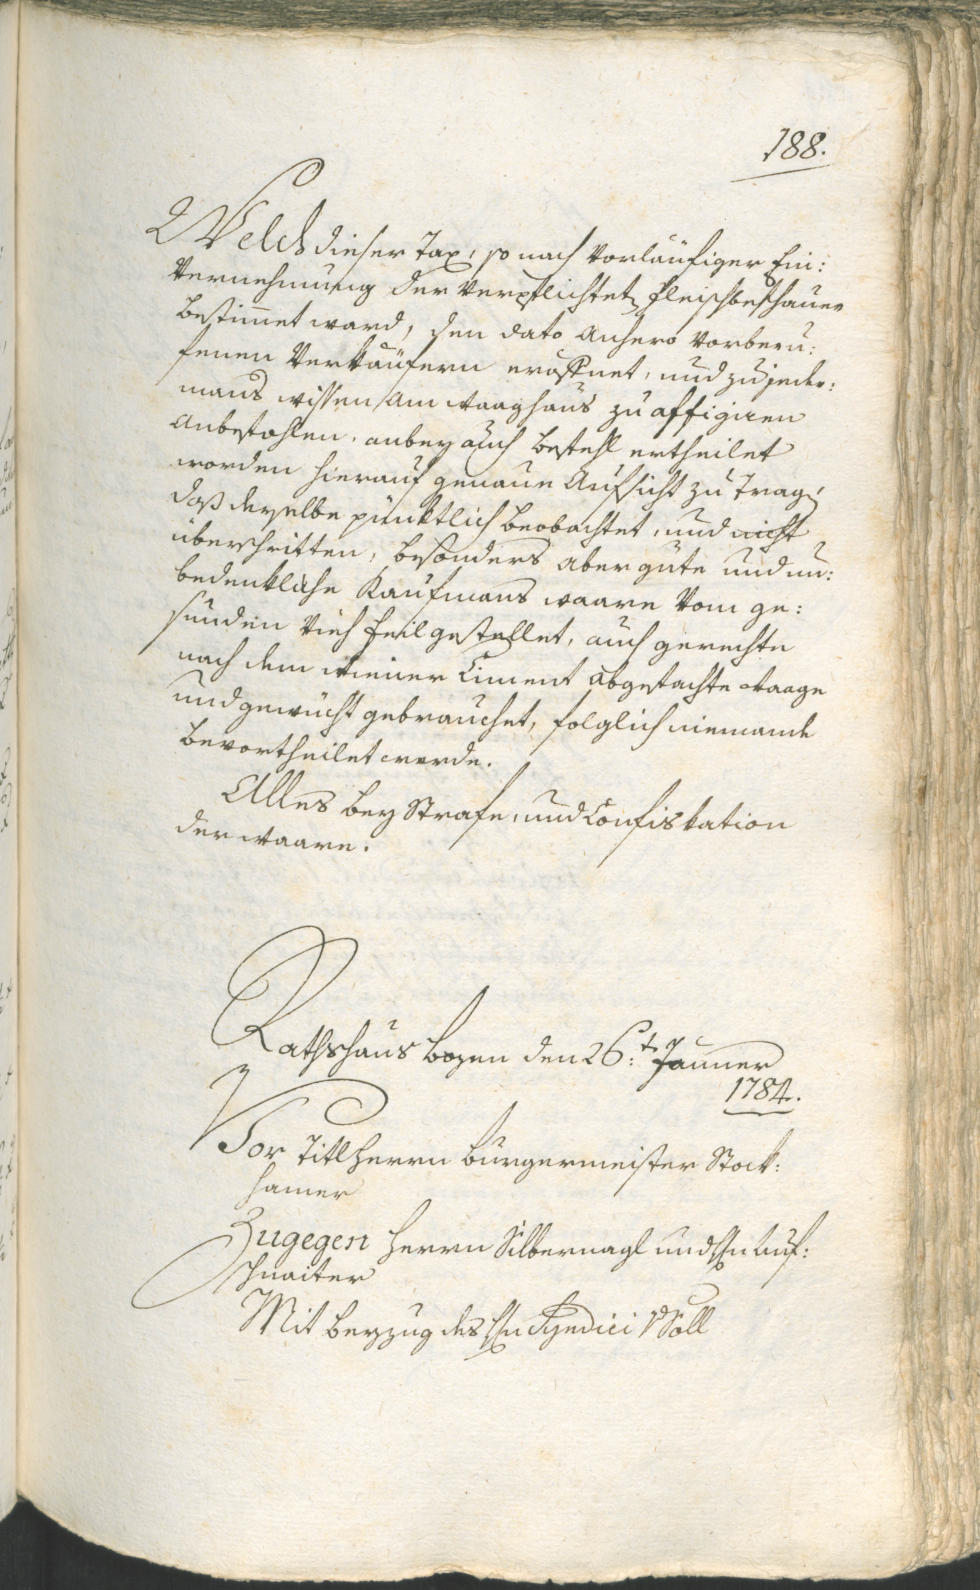 188.
Welch dieser Tax, so nach vorläufiger Ein:
vernehmung der verpflichteten Fleischbeschauer
bestimmet ward, den dato anhero vorberu:
fenen Verkäufern eröffnet, und zu jeder:
mans wissen am waaghaus zu affigiren
anbefohlen, anbey auch befehl ertheilet
worden hierauf genaue Aufsicht zu tragen
daß derselbe pünktlich beobachtet, und nicht
überschritten, besonders aber gute und un:
bedenkliche Kaufmans waare vom ge:
sunden Vieh feil gestellet, auch gerechte
nach dem wiener Ciment abgefachte waage
und gewücht gebrauchet, folglich niemande
bevortheilet werde.
Alles bey Strafe, und Confiskation
der waare.
Rathshaus Bozen den 26:t Jänner
1784.
Vor Titl Herrn Burgermeister Stock:
hamer
Zugegen Herrn Silbernagl und Hn Auf:
schnaiter
Mit beyzug des Hn Syndici Söll